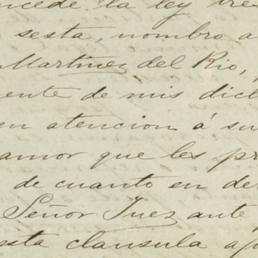 ncede la ley tres
sesta, nombro a
Martinez del Rio,
ente de mis dich
en atencion á su
amor que les pr
de cuanto en de
Señor Juez ante
esta clausula ap